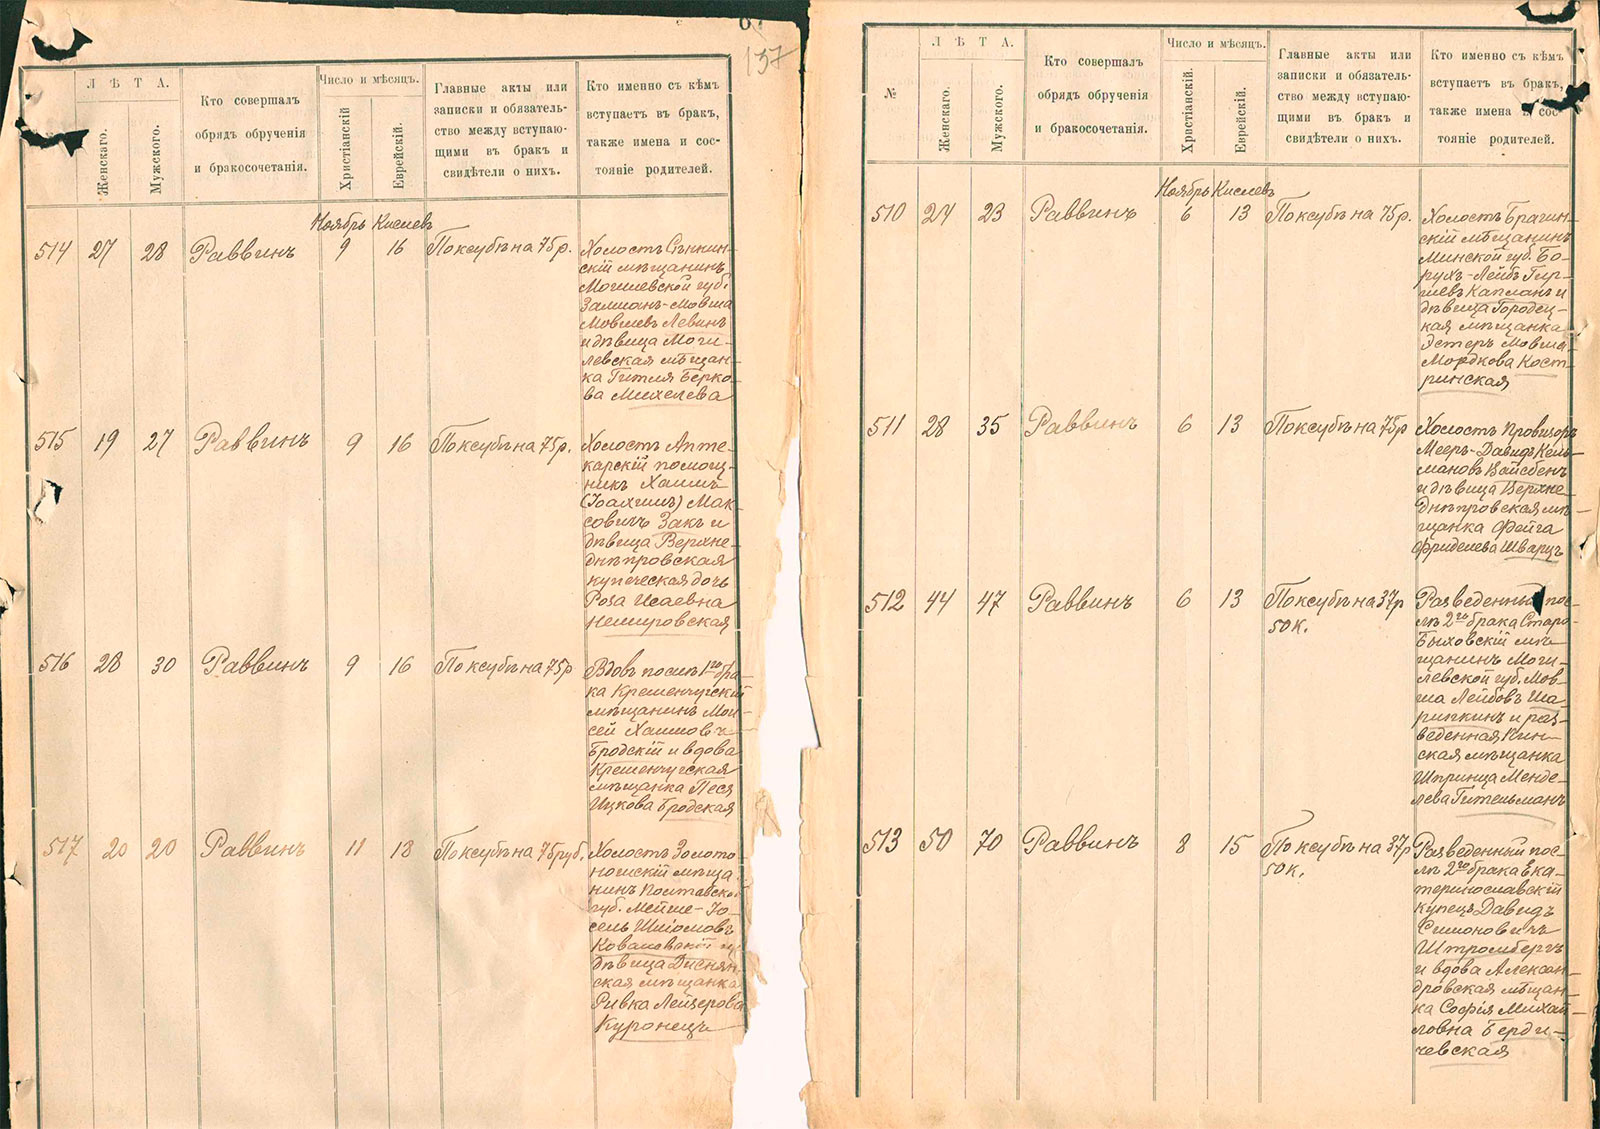 137
Л Ѣ Т А.
Женскаго.
Мужского.
Кто совершалъ
обрядъ обрученія
и бракосочетанія.
Число и мѣсяцъ.
Христіанскій
Еврейскій.
Главные акты или
записки и обязатель-
ство между вступаю-
щими въ бракъ и
свидѣтели о нихъ.
Кто именно съ кѣмъ
вступаетъ въ бракъ,
также имена и сос-
тояніе родителей.
Ноябрь Кислевъ
514 27 28 Раввинъ 9 16 По ксубѣ на 75 р.
Холостъ Сѣнкин-
скій мѣщанинъ
Могилевской губ.
Залманъ-Мовша
Мовшевъ Левинъ
и дѣвица Моги-
левская мѣщан-
ка Гитля Берко-
ва Михелева
515 19 27 Раввинъ 9 16 По ксубѣ на 75р.
Холостъ Апте-
карскій помощ-
никъ Хаимъ
(Іоахимъ) Мак-
совичъ Закъ и
дѣвица Верхне-
днѣпровская
купеческая дочь
Роза Исаевна
Немировская
516 28 30 Раввинъ 9 16 По ксубѣ на 75р
Вдовъ послѣ 1го бра-
ка Кременчугскій
мѣщанинъ Мои-
сей Хаимовъ
Бродскій и вдова
Кременчугская
мѣщанка Песя
Ицкова Бродская
517 20 20 Раввинъ 11 18 По ксубѣ на 75 руб.
Холостъ Золото-
ношскій мѣща-
нинъ Полтавской
губ. Мейше-Іо-
сель Шліомовъ
Ковалевскій и
дѣвица Диснян-
ская мѣщанка
Ривка Лейзерова
Куронецъ
№
Л Ѣ Т А.
Женскаго.
Мужского.
Кто совершалъ
обрядъ обрученія
и бракосочетанія.
Число и мѣсяцъ.
Христіанскій.
Еврейскій.
Главные акты или
записки и обязатель-
ство между вступаю-
щими въ бракъ и
свидѣтели о нихъ.
Кто именно съ кѣмъ
вступаетъ въ бракъ,
также имена и сос-
тояніе родителей.
Ноябрь Кислевъ
510 24 23 Раввинъ 6 13 По ксубѣ на 75р.
Холостъ Брагин-
скій мѣщанинъ
Минской губ. Бо-
рухъ-Лейбъ Гир-
шевъ Капланъ и
дѣвица Городец-
кая мѣщанка
Эстеръ Мовша-
Мордкова Кост-
ринская
511 28 35 Раввинъ 6 13 По ксубѣ на 75р
Холостъ Провизоръ
Мееръ-Давидъ Кель-
мановъ Вайсбенъ
и дѣвица Верхне-
днѣпровская мѣ-
щанка Фейга
Фриделева Шварцъ
512 44 47 Раввинъ 6 13 По ксубѣ на 37р
50 к.
Разведенный пос-
лѣ 2го брака Старо-
Быховскій мѣ-
щанинъ Моги-
левской губ. Мов-
ша Лейбовъ Ша-
рипкинъ и раз-
веденная Пин-
ская мѣщанка
Шпринца Менде-
лева Гительманъ
513 50 70 Раввинъ 8 15 По ксубѣ на 37р
50 к.
Разведенный пос-
лѣ 2го брака Ека-
теринославскій
купецъ Давидъ
Симоновичъ
Штромбергъ
и вдова Алексан-
дровская мѣщан-
ка Софія Михай-
ловна Берди-
чевская